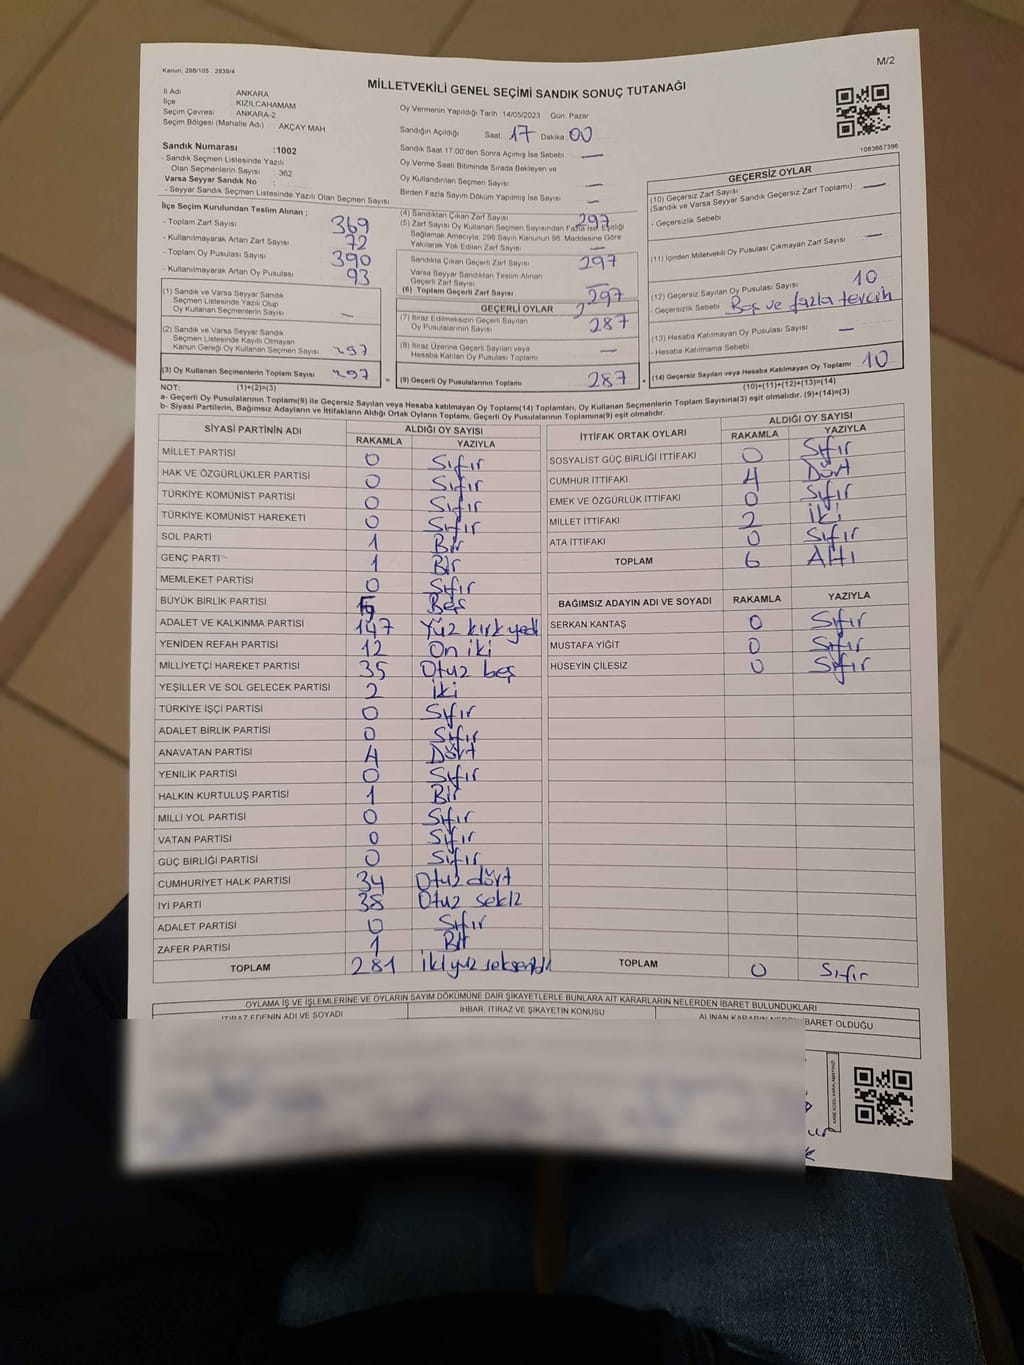 Kanun: 298/105 , 2839/4
M/2
MİLLETVEKİLİ GENEL SEÇİMİ SANDIK SONUÇ TUTANAĞI
İl Adı : ANKARA
İlçe : KIZILCAHAMAM
Seçim Çevresi : ANKARA-2
Seçim Bölgesi (Mahalle Adı) : AKÇAY MAH
Sandık Numarası :1002
- Sandık Seçmen Listesinde Yazılı
Olan Seçmenlerin Sayısı : 362
Varsa Seyyar Sandık No :
- Seyyar Sandık Seçmen Listesinde Yazılı Olan Seçmen Sayısı :
Oy Vermenin Yapıldığı Tarih 14/05/2023 Gün Pazar
Sandığın Açıldığı Saat 17 Dakika 00
Sandık Saat 17.00'den Sonra Açılmış İse Sebebi —
Oy Verme Saati Bitiminde Sırada Bekleyen ve
Oy Kullandırılan Seçmen Sayısı —
Birden Fazla Sayım Döküm Yapılmış İse Sayısı —
1083667396
İlçe Seçim Kurulundan Teslim Alınan :
- Toplam Zarf Sayısı 369
- Kullanılmayarak Artan Zarf Sayısı 72
- Toplam Oy Pusulası Sayısı 390
- Kullanılmayarak Artan Oy Pusulası 93
(1) Sandık ve Varsa Seyyar Sandık
Seçmen Listesinde Yazılı Olup
Oy Kullanan Seçmenlerin Sayısı —
(2) Sandık ve Varsa Seyyar Sandık
Seçmen Listesinde Kayıtlı Olmayan
Kanun Gereği Oy Kullanan Seçmen Sayısı 297
(3) Oy Kullanan Seçmenlerin Toplam Sayısı 297
(4) Sandıktan Çıkan Zarf Sayısı 297
(5) Zarf Sayısı Oy Kullanan Seçmen Sayısından Fazla İse, Eşitliği
Sağlamak Amacıyla, 298 Sayılı Kanunun 98. Maddesine Göre
Yakılarak Yok Edilen Zarf Sayısı —
Sandıkta Çıkan Geçerli Zarf Sayısı 297
Varsa Seyyar Sandıktan Teslim Alınan
Geçerli Zarf Sayısı —
(6) Toplam Geçerli Zarf Sayısı 297
GEÇERLİ OYLAR
(7) İtiraz Edilmeksizin Geçerli Sayılan
Oy Pusulasının Sayısı 287
(8) İtiraz Üzerine Geçerli Sayılan veya
Hesaba Katılan Oy Pusulası Toplamı —
= (9) Geçerli Oy Pusulalarının Toplamı 287 +
GEÇERSİZ OYLAR
(10) Geçersiz Zarf Sayısı
(Sandık ve Varsa Seyyar Sandık Geçersiz Zarf Toplamı) : —
- Geçersizlik Sebebi :
(11) İçinden Milletvekili Oy Pusulası Çıkmayan Zarf Sayısı —
(12) Geçersiz Sayılan Oy Pusulası Sayısı 10
- Geçersizlik Sebebi Boş ve fazla tercih
(13) Hesaba Katılmayan Oy Pusulası Sayısı —
- Hesaba Katılmama Sebebi :
(14) Geçersiz Sayılan veya Hesaba Katılmayan Oy Toplamı : 10
NOT: (1)+(2)=(3)
(10)+(11)+(12)+(13)=(14)
a- Geçerli Oy Pusulalarının Toplamı(9) ile Geçersiz Sayılan veya Hesaba Katılmayan Oy Toplamı(14) Toplamları, Oy Kullanan Seçmenlerin Toplam Sayısına(3) eşit olmalıdır. (9)+(14)=(3)
b- Siyasi Partilerin, Bağımsız Adayların ve İttifakların Aldığı Ortak Oyların Toplamı, Geçerli Oy Pusulalarının Toplamına(9) eşit olmalıdır.
SİYASİ PARTİNİN ADI ALDIĞI OY SAYISI
RAKAMLA YAZIYLA
MİLLET PARTİSİ 0 Sıfır
HAK VE ÖZGÜRLÜKLER PARTİSİ 0 Sıfır
TÜRKİYE KOMÜNİST PARTİSİ 0 Sıfır
TÜRKİYE KOMÜNİST HAREKETİ 0 Sıfır
SOL PARTİ 1 Bir
GENÇ PARTİ 1 Bir
MEMLEKET PARTİSİ 0 Sıfır
BÜYÜK BİRLİK PARTİSİ 5 Beş
ADALET VE KALKINMA PARTİSİ 147 Yüz kırk yedi
YENİDEN REFAH PARTİSİ 12 On iki
MİLLİYETÇİ HAREKET PARTİSİ 35 Otuz beş
YEŞİLLER VE SOL GELECEK PARTİSİ 2 iki
TÜRKİYE İŞÇİ PARTİSİ 0 Sıfır
ADALET BİRLİK PARTİSİ 0 Sıfır
ANAVATAN PARTİSİ 4 Dört
YENİLİK PARTİSİ 0 Sıfır
HALKIN KURTULUŞ PARTİSİ 1 Bir
MİLLİ YOL PARTİSİ 0 Sıfır
VATAN PARTİSİ 0 Sıfır
GÜÇ BİRLİĞİ PARTİSİ 0 Sıfır
CUMHURİYET HALK PARTİSİ 34 Otuz dört
İYİ PARTİ 38 Otuz sekiz
ADALET PARTİSİ 0 Sıfır
ZAFER PARTİSİ 1 Bir
TOPLAM 281 ikiyüz seksenbir
İTTİFAK ORTAK OYLARI ALDIĞI OY SAYISI
RAKAMLA YAZIYLA
SOSYALİST GÜÇ BİRLİĞİ İTTİFAKI 0 Sıfır
CUMHUR İTTİFAKI 4 Dört
EMEK VE ÖZGÜRLÜK İTTİFAKI 0 Sıfır
MİLLET İTTİFAKI 2 iki
ATA İTTİFAKI 0 Sıfır
TOPLAM 6 Altı
BAĞIMSIZ ADAYIN ADI VE SOYADI RAKAMLA YAZIYLA
SERKAN KANTAŞ 0 Sıfır
MUSTAFA YİĞİT 0 Sıfır
HÜSEYİN ÇİLESİZ 0 Sıfır
TOPLAM 0 Sıfır
OYLAMA İŞ VE İŞLEMLERİNE VE OYLARIN SAYIM DÖKÜMÜNE DAİR ŞİKAYETLERLE BUNLARA AİT KARARLARIN NELERDEN İBARET BULUNDUKLARI
İTİRAZ EDENİN ADI VE SOYADI İHBAR, İTİRAZ VE ŞİKAYETİN KONUSU ALINAN KARARIN NEDEN İBARET OLDUĞU